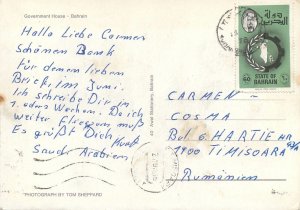 Government House - Bahrain
Hallo Liebe Carmen
Schönen Dank
für deinen lieben
Brief im Juni.
Ich schreibe Dir in
1 oder Wochen. Da ich
weiter fliegen muß
Es grüßt Dich
Saudi Arabien
PHOTOGRAPH BY TOM SHEPPARD
دولة البحرين
60
STATE OF
BAHRAIN
CARMEN-
COSMA
Bul 6 HARTIEHR
1900 TIMISOARA
Rumänien